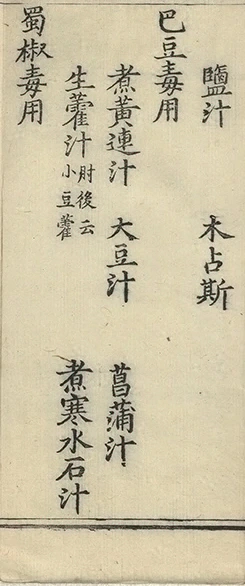 鹽汁　木占斯
巴豆毒用
煮黃連汁　大豆汁　菖蒲汁
生藿汁肘後云小豆藿　煮寒水石汁
蜀椒毒用